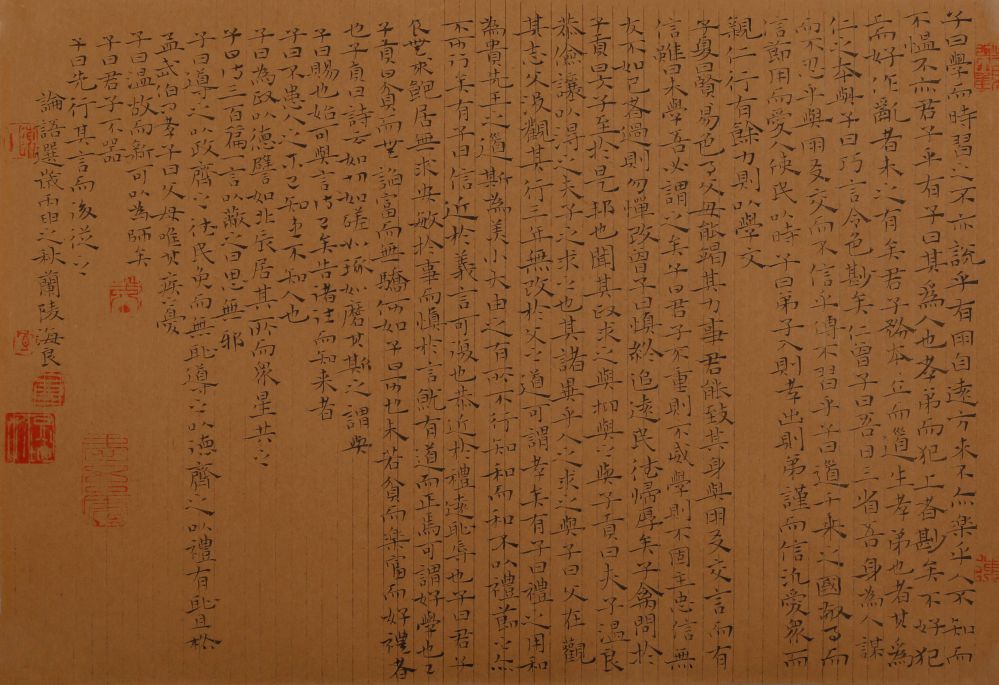 子曰學而時習之不亦說乎有朋自遠方來不亦樂乎人不知而
不慍不亦君子乎有子曰其為人也孝弟而犯上者尠矣不好犯
上而好作亂者未之有矣君子務本本立而道生孝弟也者其為
仁之本與子曰巧言令色尠矣仁曾子曰吾日三省吾身為人謀
而不忠乎與朋友交而不信乎傳不習乎子曰道千乘之國敬事而
信節用而愛人使民以時子曰弟子入則孝出則弟謹而信汎愛眾而
親仁行有餘力則以學文
子夏曰賢賢易色事父母能竭其力事君能致其身與朋友交言而有
信雖曰未學吾必謂之矣子曰君子不重則不威學則不固主忠信無
友不如己者過則勿憚改曾子曰慎終追遠民德歸厚矣子禽問於
子貢曰夫子至於是邦也聞其政求之與抑與之與子貢曰夫子溫良
恭儉讓以得之夫子之求之也其諸異乎人之求之與子曰父在觀
其志父沒觀其行三年無改於父之道可謂孝矣有子曰禮之用和
為貴先王之道斯為美小大由之有所不行知和而和不以禮節之亦
不可行矣有子曰信近於義言可復也恭近於禮遠恥辱也子曰君子
食無求飽居無求安敏於事而慎於言就有道而正焉可謂好學也已
子貢曰貧而無諂富而無驕何如子曰可也未若貧而樂富而好禮者
也子貢曰詩云如切如磋如琢如磨其斯之謂與
子曰賜也始可與言詩已矣告諸往而知來者
子曰不患人之不己知患不知人也
子曰為政以德譬如北辰居其所而眾星共之
子曰詩三百篇一言以蔽之曰思無邪
子曰導之以政齊之以法民免而無恥導之以德齊之以禮有恥且格
孟武伯問孝子曰父母唯其疾憂
子曰溫故而新可以為師矣
子曰君子不器
子曰先行其言而後從之
論語選歲丙申之秋蘭陵海良